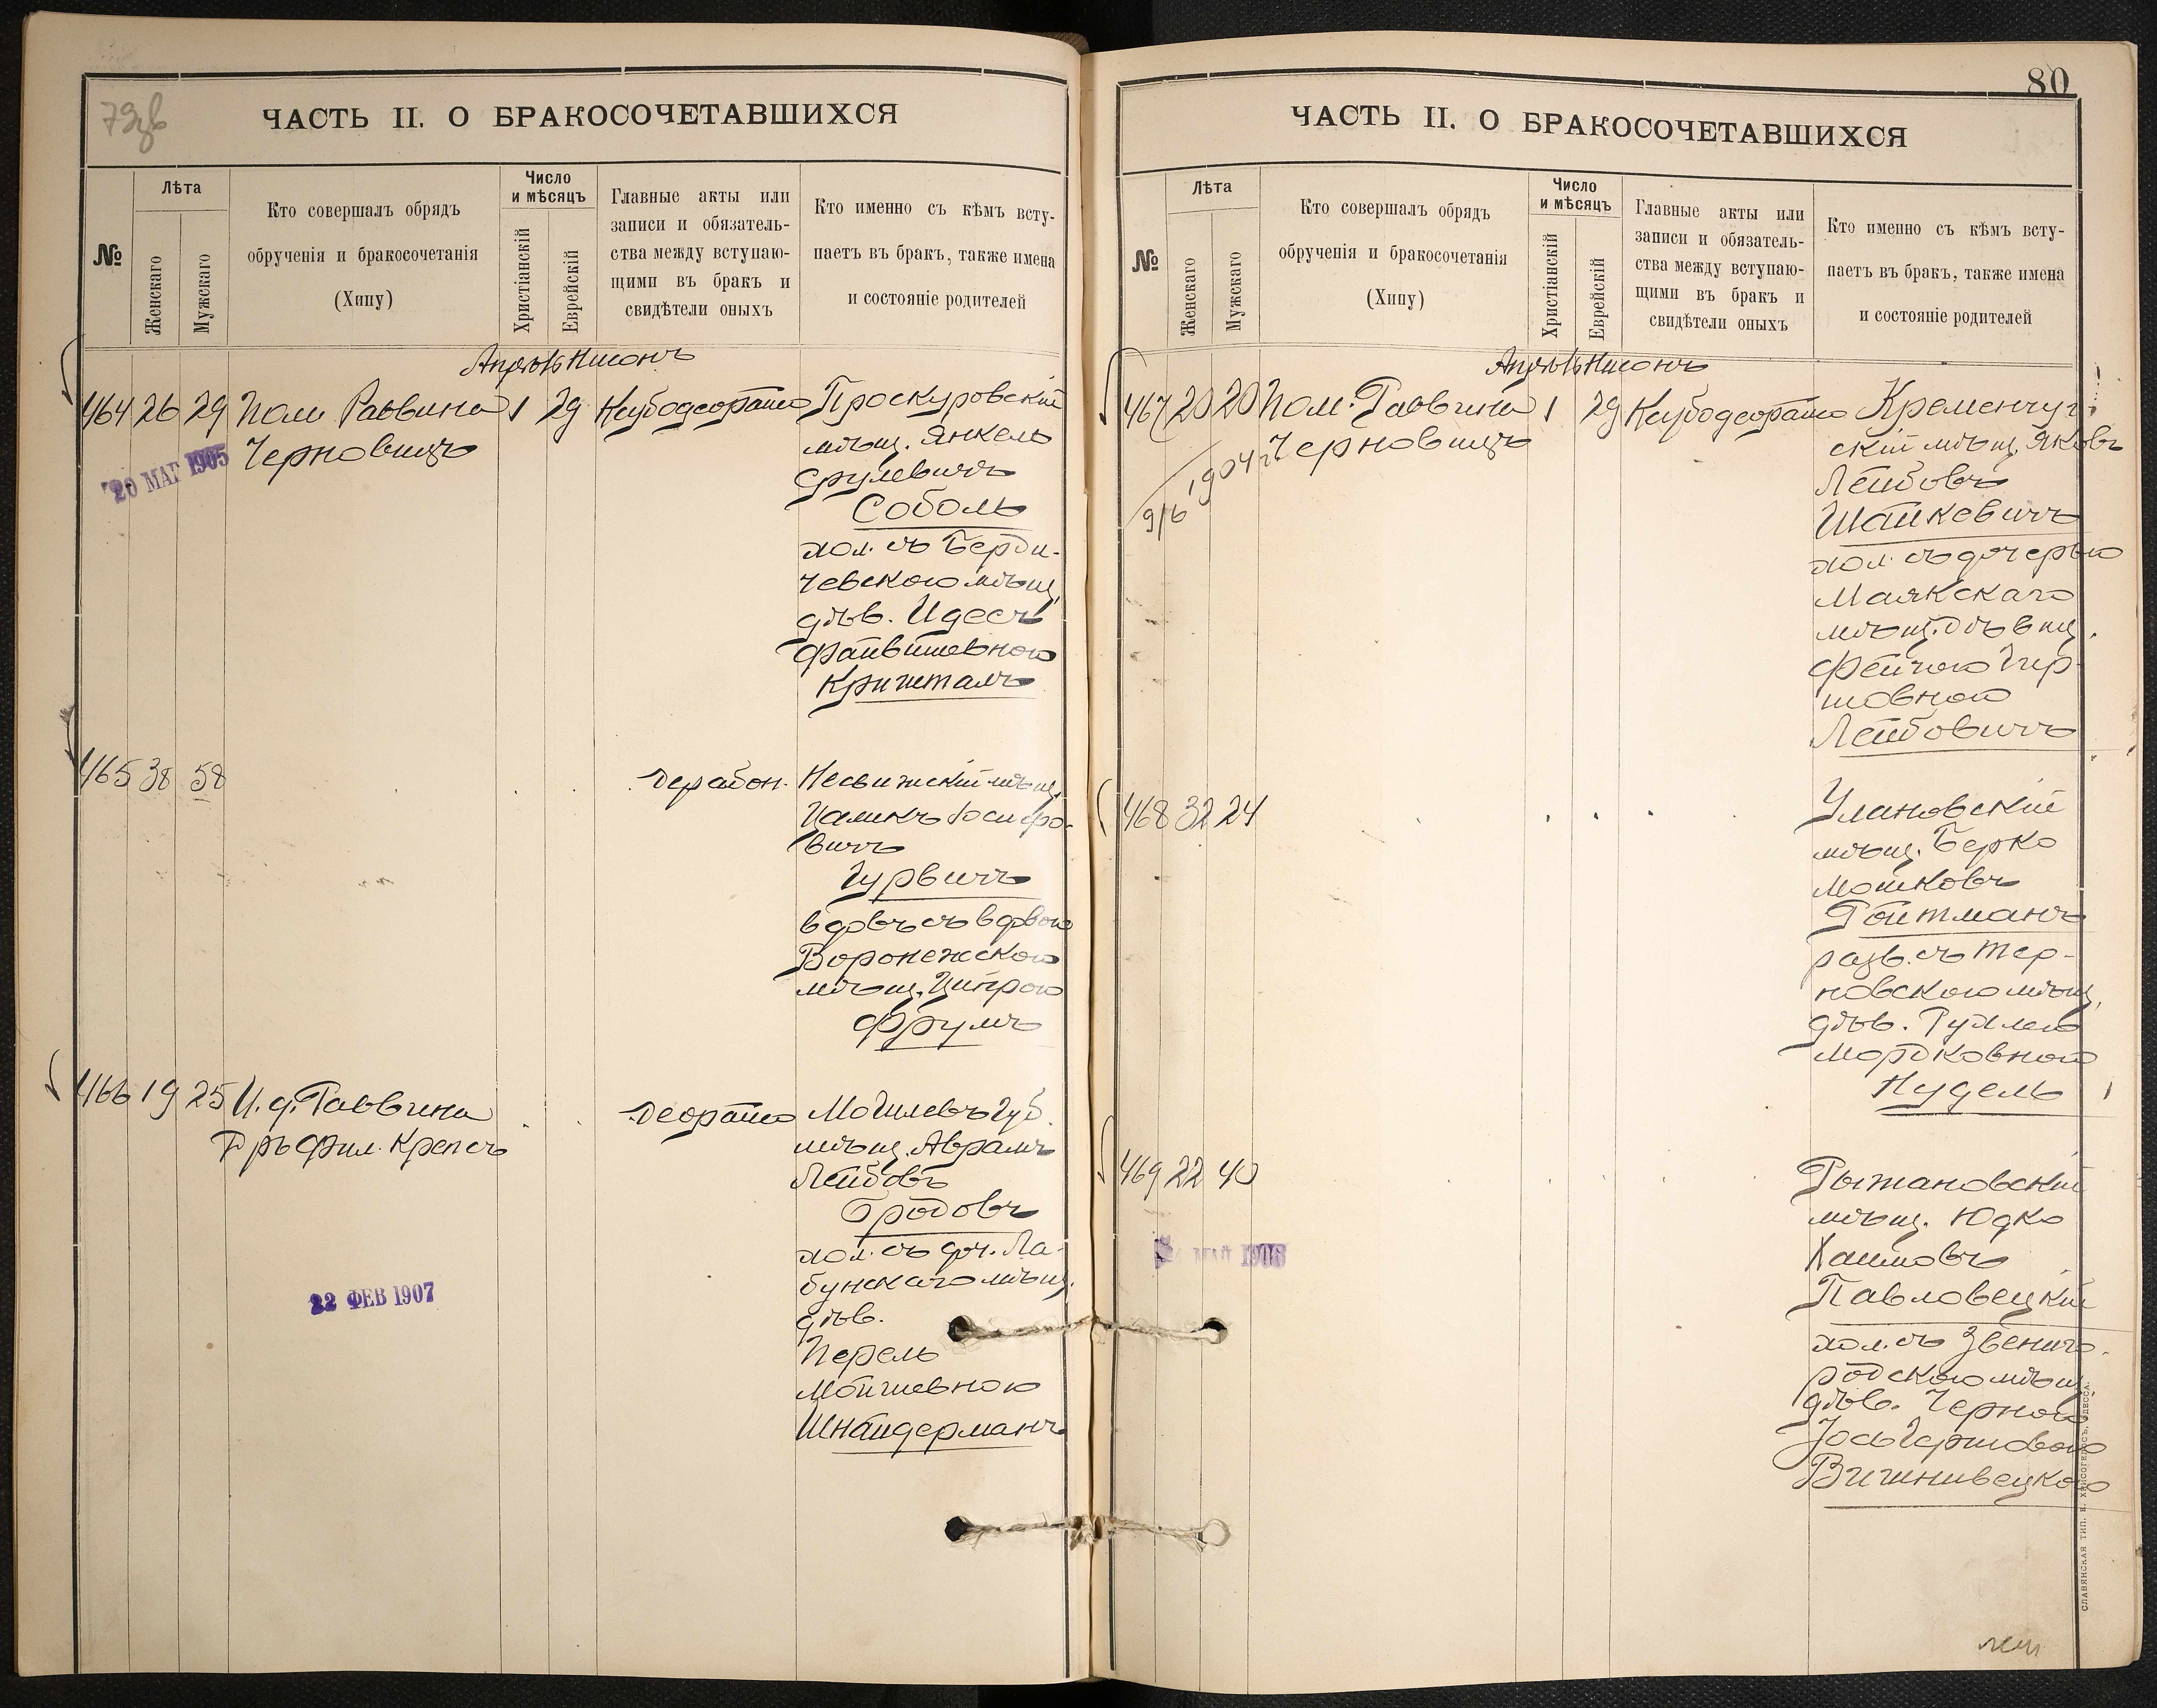 79 зв
ЧАСТЬ II. О БРАКОСОЧЕТАВШИХСЯ
№
Лѣта
Женскаго
Мужскаго
Кто совершалъ обрядъ
обрученія и бракосочетанія
(Хипу)
Число
и мѣсяцъ
Христіанскій
Еврейскій
Главные акты или
записи и обязатель-
ства между вступаю-
щими въ бракъ и
свидѣтели оныхъ
Кто именно съ кѣмъ всту-
паетъ въ бракъ, также имена
и состояніе родителей
Апрѣль Нисонъ
464 26 29 Пом. Раввина 1 29 Кубодеорайсо Проскуровскій
Черновицъ
20 МАР 1905
мѣщ. Янкель
Срулевичъ
Соболь
хол. съ Берди-
чевскою мѣщ.
дѣв. Идесъ
Файвишевною
Кришталъ
465 38 58 Дерабон. Несвижскій мѣщ.
Иосифо-
вичъ
Гурвичъ
вдовъ съ вдовою
Воронежскою
мѣщ. Ципрою
Фрумъ
466 19 25 И. д. Раввина Деорайсо Могилевъ Губ.
Д-ръ Фил. Крепсъ
мѣщ. Аврамъ
Лейбовъ
Бродовъ
хол. съ доч. Ла-
бунскаго мѣщ.
дѣв.
Перель
Мойшевною
Шнайдерманъ
22 ФЕВ 1907
80
ЧАСТЬ II. О БРАКОСОЧЕТАВШИХСЯ
№
Лѣта
Женскаго
Мужскаго
Кто совершалъ обрядъ
обрученія и бракосочетанія
(Хипу)
Число
и мѣсяцъ
Христіанскій
Еврейскій
Главные акты или
записи и обязатель-
ства между вступаю-
щими въ бракъ и
свидѣтели оныхъ
Кто именно съ кѣмъ всту-
паетъ въ бракъ, также имена
и состояніе родителей
Апрѣль Нисонъ
467 20 20 Пом. Раввина 1 29 Кубодеорайсо Кременчуг-
Черновицъ
9/6 1904 г.
скій мѣщ. Яковъ
Лейбовъ
Шайкевичъ
хол. съ дочерью
Маякскаго
мѣщ. дѣвиц.
Фейгою Гер-
шовною
Лейбовичъ
468 32 24 Улановскій
мѣщ. Берко
Мошковъ
Ройтманъ
разв. съ Тер-
новскою мѣщ.
дѣв. Рухлею
Мордковною
Нудель
469 22 40 Рыжановскій
мѣщ. Юдко
Хаимовъ
Павловецкій
хол. съ Звениго-
родскою мѣщ.
дѣв. Черною
Іось Гершовою
Вишнивецкою
МАЙ 1906
СЛАВЯНСКАЯ ТИП. Н. ХРИСОГЕЛОСЪ, ОДЕССА.